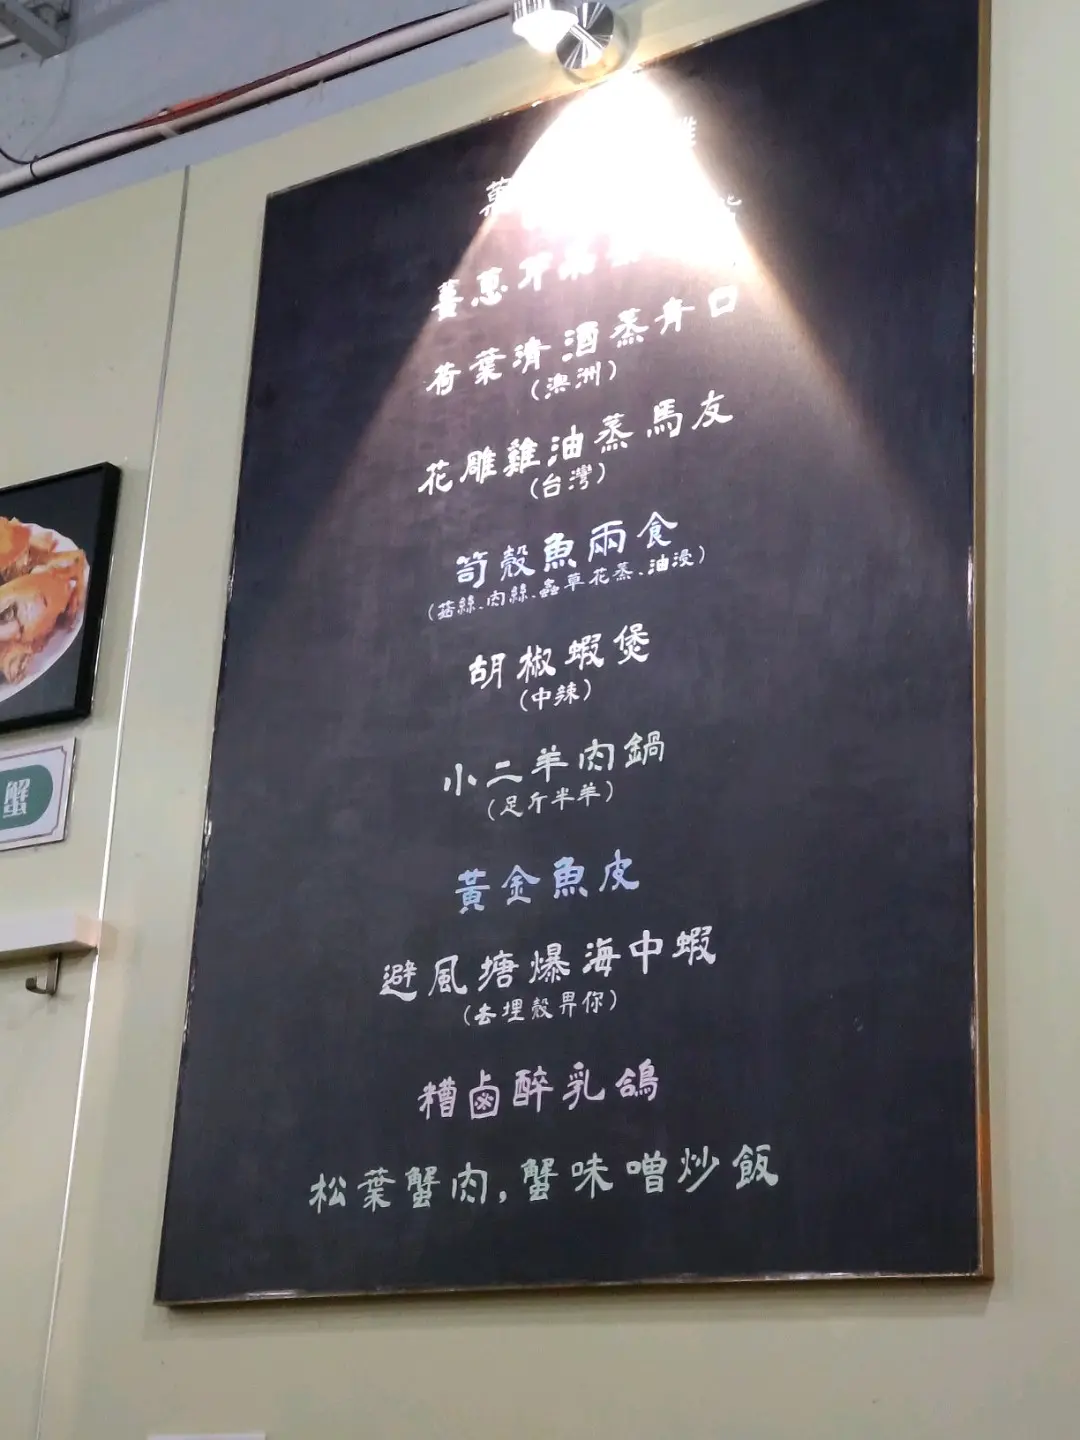 薑蔥
荷葉清酒蒸青口
(澳洲)
花雕雞油蒸馬友
(台灣)
笋殼魚兩食
(菇絲、肉絲、蟲草花蒸、油浸)
胡椒蝦煲
(中辣)
小二羊肉鍋
(足斤半羊)
黃金魚皮
避風搪爆海中蝦
(去埋殼畀你)
糟鹵醉乳鴿
松葉蟹肉,蟹味噌炒飯
蟹